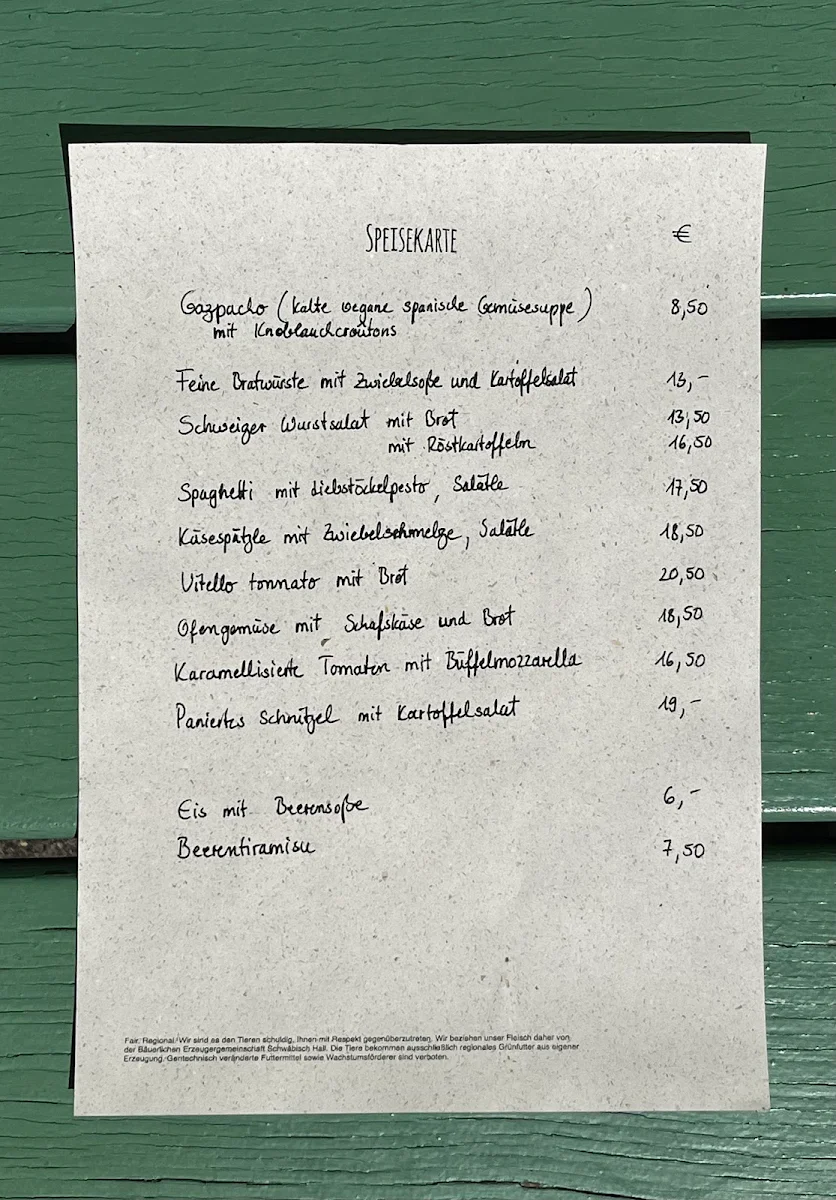 SPEISEKARTE €
Gazpacho (kalte vegane spanische Gemüsesuppe) 8,50
mit Knoblauchcroûtons
Feine Bratwürste mit Zwiebelsoße und Kartoffelsalat 13,-
Schweizer Wurstsalat mit Brot 13,50
mit Röstkartoffeln 16,50
Spaghetti mit Liebstöckelpesto, Salätle 17,50
Käsespätzle mit Zwiebelschmelze, Salätle 18,50
Vitello tonnato mit Brot 20,50
Ofengemüse mit Schafskäse und Brot 18,50
Karamellisierte Tomaten mit Büffelmozzarella 16,50
Paniertes Schnitzel mit Kartoffelsalat 19,-
Eis mit Beerensoße 6,-
Beerentiramisu 7,50
Fair. Regional. Wir sind es den Tieren schuldig, Ihnen mit Respekt gegenüberzutreten. Wir beziehen unser Fleisch daher von
der Bäuerlichen Erzeugergemeinschaft Schwäbisch Hall. Die Tiere bekommen ausschließlich regionales Grünfutter aus eigener
Erzeugung. Gentechnisch veränderte Futtermittel sowie Wachstumsförderer sind verboten.